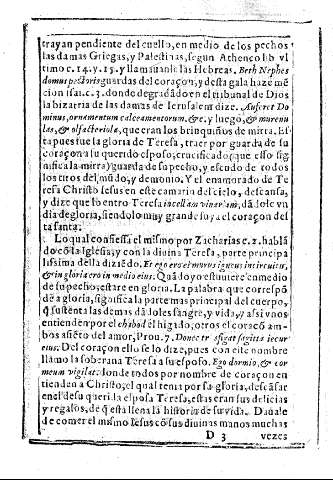 trayan pendiente del cuello, en medio de los pechos
las damas Griegas, y Palestinas, segun Atheneo lib vl
timo c. 14. y. 15. y llamauanle las Hebreas. Beth Nephes
domus pectoris guardas del coraçon, y desta gala haze mẽ
cion Isai. c. 3. donde degradãdo en el tribunal de Dios
la bizarria de las damas de Ierusalem dize. Auferet Do
minus, ornamentum calceamentorum, &c. y luego, & murenu
las, & olfactoriola, que eran los brinquiños de mirra. Es
ta pues fue la gloria de Teresa, traer por guarda de su
coraçon a su querido esposo, crucificado (que esso sig
nifica la mirra) guarda de su pecho, y escudo de todos
los tiros del mũdo, y demonio. Y el enamorado de Te
resa Christo Iesus en este camarin del cielo, descansa,
y dize que lo entro Teresa in cellam vinariam, dãdole vn
dia de gloria, siendolo muy grande suya el coraçon del
ta santa.
Lo qual confiessa el mismo por Zacharias c. 2. hablã
do cõ la Iglesia, y con la diuina Teresa, parte principa
lissima della diziẽdo. Et ego ero ei murus igneus in circuitu,
& in gloria ero in medio eius. Quãdo yo estuuiere en medio
de su pecho, estare en gloria. La palabra que correspõ
dẽ a gloria, significa la parte mas principal del cuerpo,
q̃ sustenta las demas dãdoles sangre, y vida, y assi vnos
entienden por el chabod el higado; otros el coraçõ am-
bos assiẽto del amor, Prou. 7. Donec transfigat sagitta iecur
eius. Del coraçon ello se lo dize, pues con este nombre
llamo la soberana Teresa a su esposo. Ego dormio, & cor
meum vigilat: donde todos por nombre de coraçon en
tienden a Christo, el qual tenia por sa gloria, descãsar
en el de su querida esposa Teresa, estas eran sus delicias
y regalos, de q̃ esta llena la historia de su vida. Dauale
de comer el mismo Iesus cõ sus diuinas manos muchas
D 3 vezes